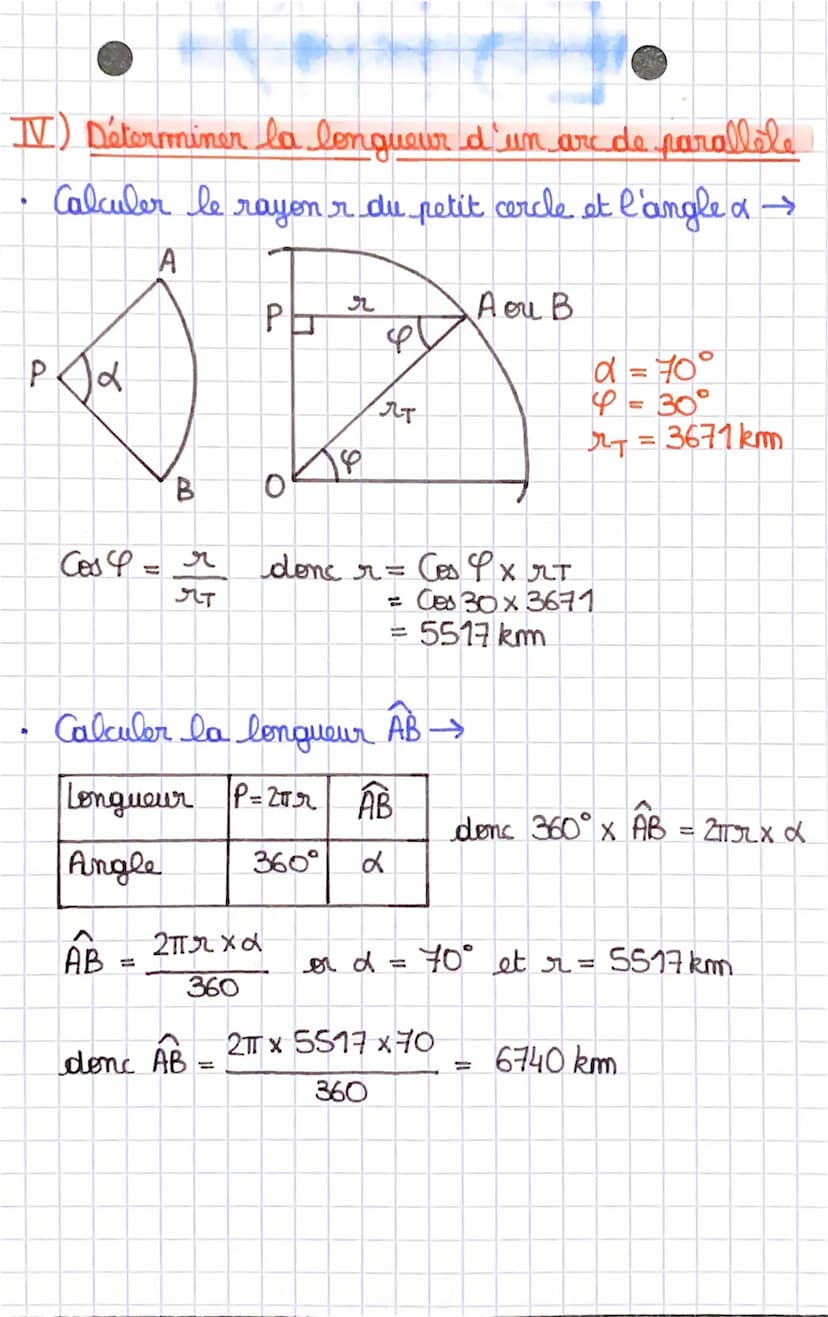 IV) Déterminer la longueur d'un arc de parallèle
• Calculer le rayon r du petit cercle et l'angle α →
A
P α
B
P r A ou B
φ
r_T
φ
O
α = 70°
φ = 30°
r_T = 3671 km
Cos φ = r / r_T donc r = Cos φ x r_T
= Cos 30 x 3671
= 5517 km
• Calculer la longueur ÂB →
Longueur P = 2πr ÂB
Angle 360° α
donc 360° x ÂB = 2πr x α
ÂB = 2πr x α / 360 or α = 70° et r = 5517 km
donc ÂB = 2π x 5517 x 70 / 360 = 6740 km